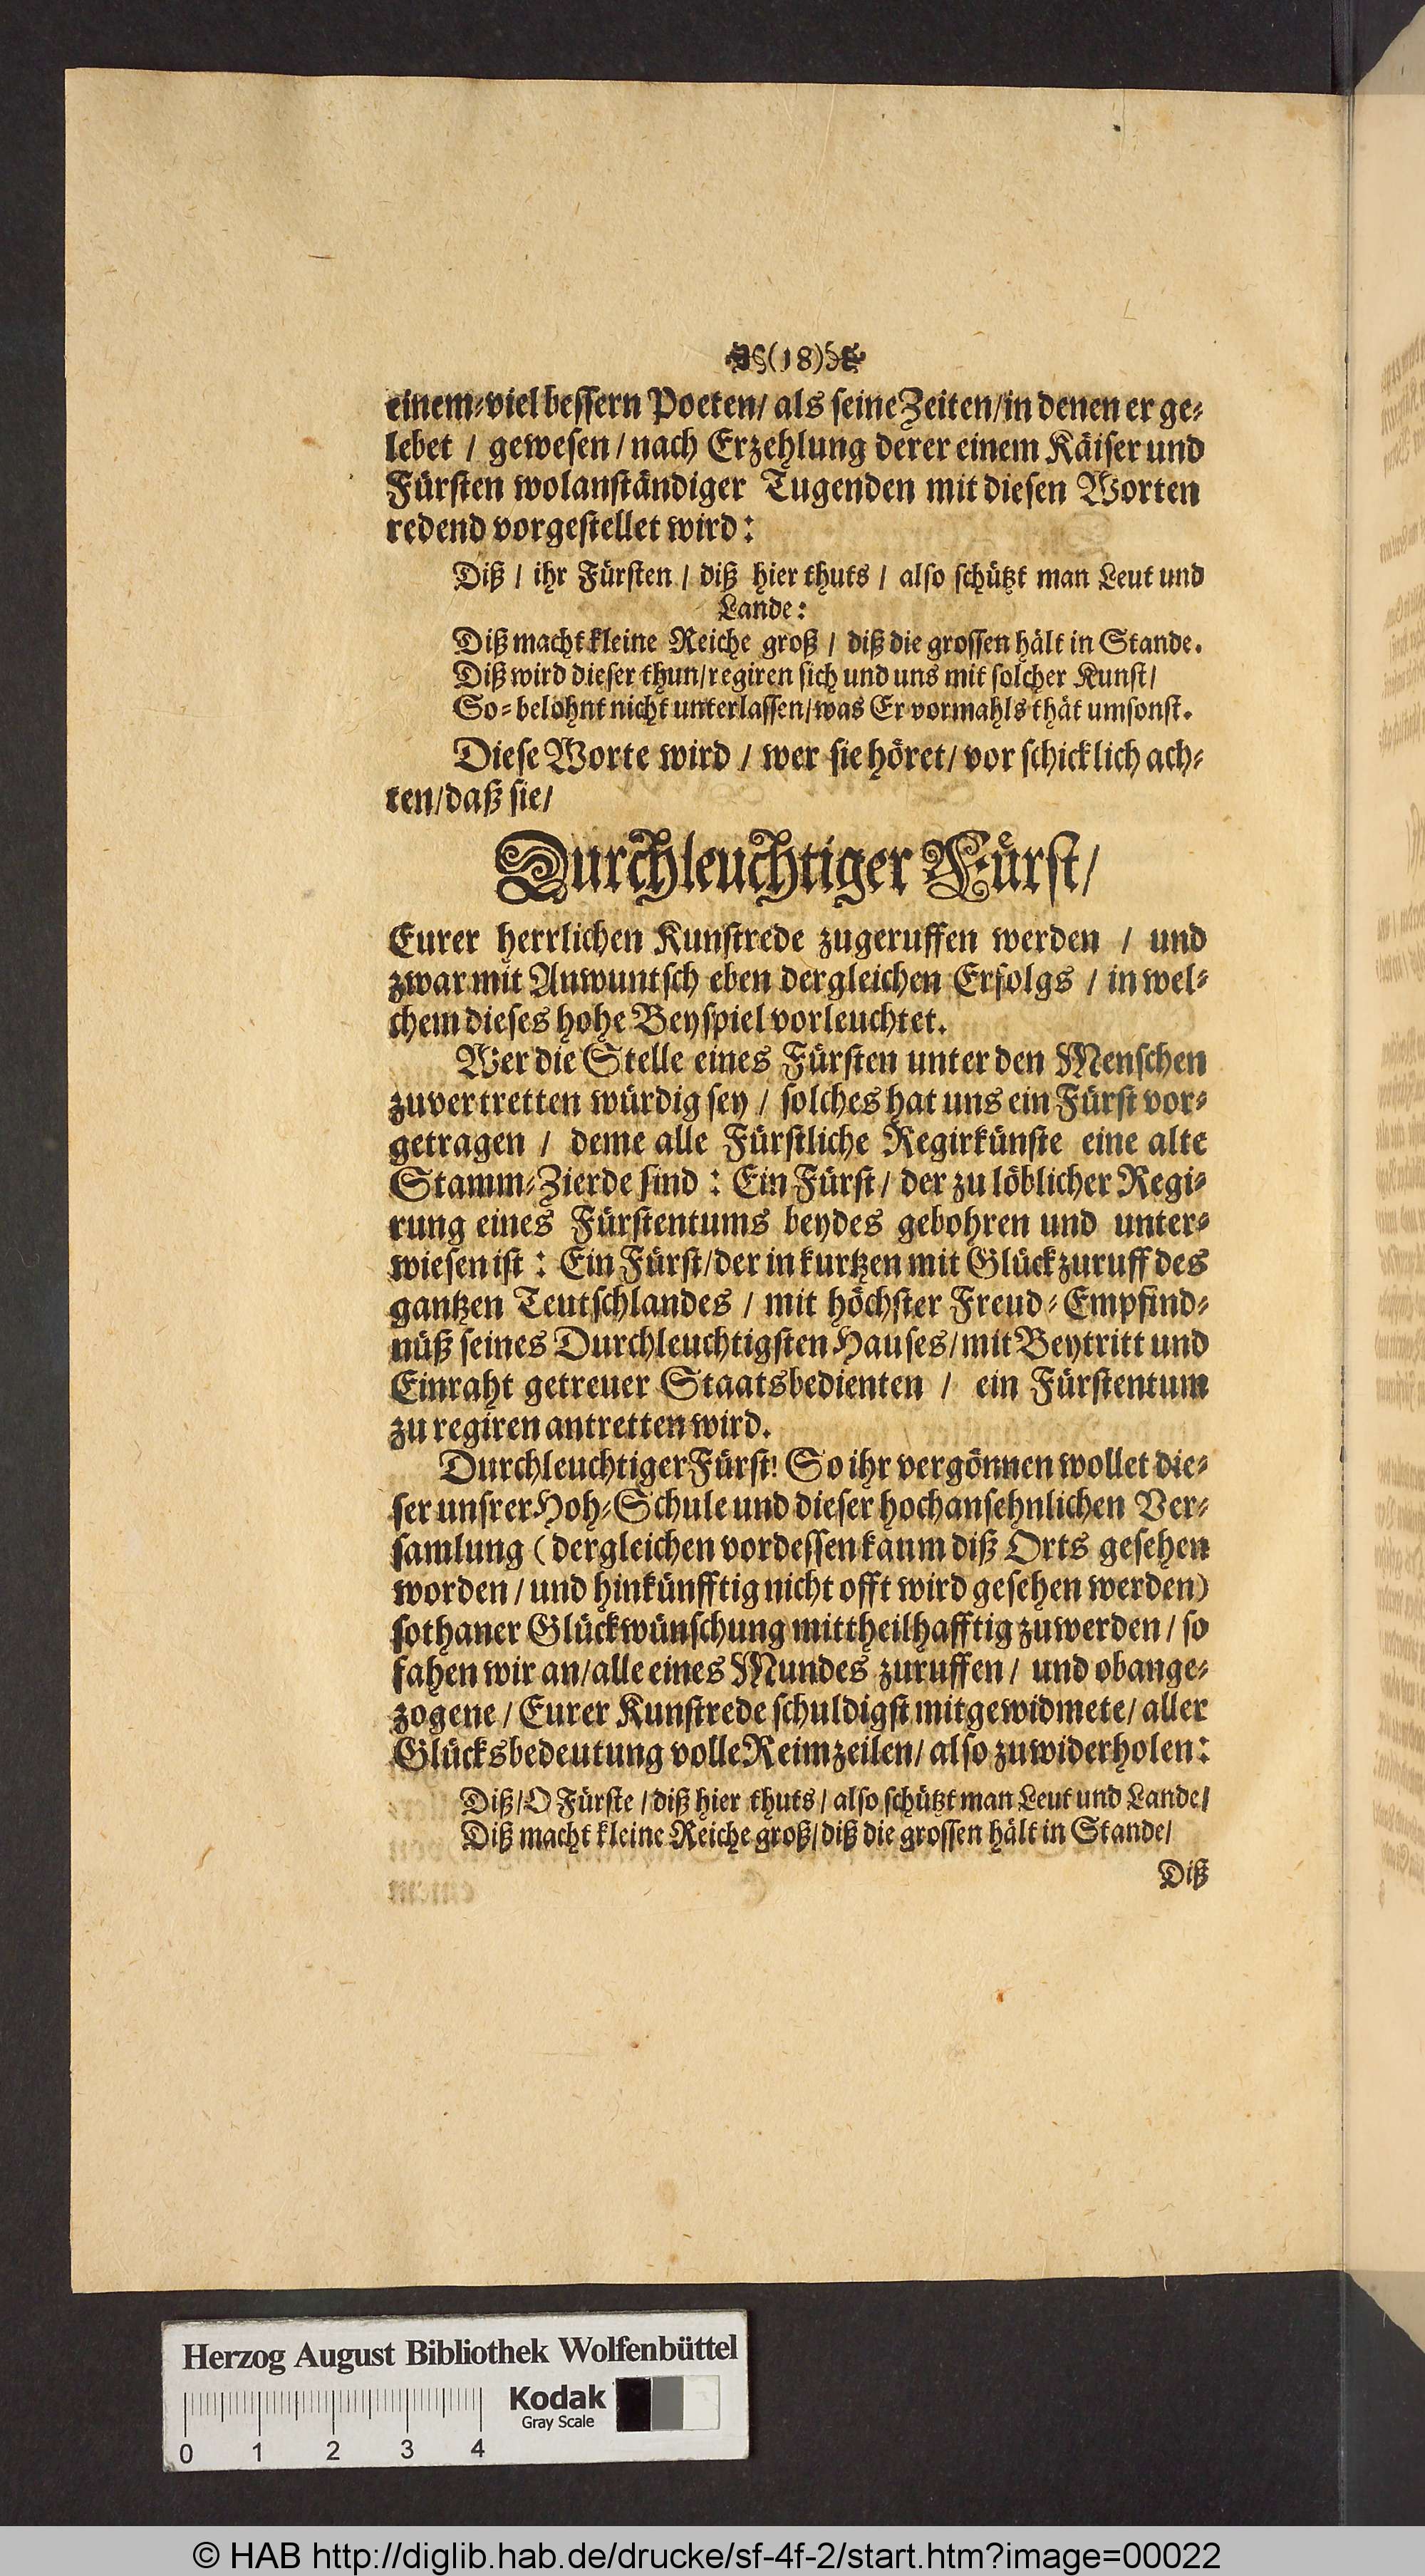 (18)
einem-viel bessern Poeten/ als seine Zeiten/in denen er ge-
lebet / gewesen / nach Erzehlung derer einem Käiser und
Fürsten wolanständiger Tugenden mit diesen Worten
redend vorgestellet wird:
Diß / ihr Fürsten / diß hier thuts / also schützt man Leut und
Lande:
Diß macht kleine Reiche groß / diß die grossen hält in Stande.
Diß wird dieser thun/regiren sich und uns mit solcher Kunst/
So-belohnt nicht unterlassen/was Er vormahls thät umsonst.
Diese Worte wird / wer sie höret/ vor schicklich ach-
ten/daß sie/
Durchleuchtiger Fürst/
Eurer herrlichen Kunstrede zugeruffen werden / und
zwar mit Anwuntsch eben dergleichen Erfolgs / in wel-
chem dieses hohe Beyspiel vorleuchtet.
Wer die Stelle eines Fürsten unter den Menschen
zuvertretten würdig sey / solches hat uns ein Fürst vor-
getragen / deme alle Fürstliche Regirkünste eine alte
Stamm-Zierde sind: Ein Fürst/ der zu löblicher Regi-
rung eines Fürstentums beydes gebohren und unter-
wiesen ist: Ein Fürst/der in kurtzen mit Glückzuruff des
gantzen Teutschlandes / mit höchster Freud-Empfind-
nüß seines Durchleuchtigsten Hauses/mit Beytritt und
Einraht getreuer Staatsbedienten / ein Fürstentum
zu regiren antretten wird.
Durchleuchtiger Fürst! So ihr vergönnen wollet die-
ser unsrer Hoh-Schule und dieser hochansehnlichen Ver-
samlung (dergleichen vordessen kaum diß Orts gesehen
worden / und hinkünfftig nicht offt wird gesehen werden)
sothaner Glückwünschung mittheilhafftig zuwerden / so
fahen wir an/alle eines Mundes zuruffen/ und obange-
zogene / Eurer Kunstrede schuldigst mitgewidmete/ aller
Glücksbedeutung volle Reimzeilen/ also zuwiderholen:
Diß/ O Fürste / diß hier thuts / also schützt man Leut und Lande/
Diß macht kleine Reiche groß/diß die grossen hält in Stande/
Diß
Herzog August Bibliothek Wolfenbüttel
Kodak
Gray Scale
0 1 2 3 4
© HAB http://diglib.hab.de/drucke/sf-4f-2/start.htm?image=00022